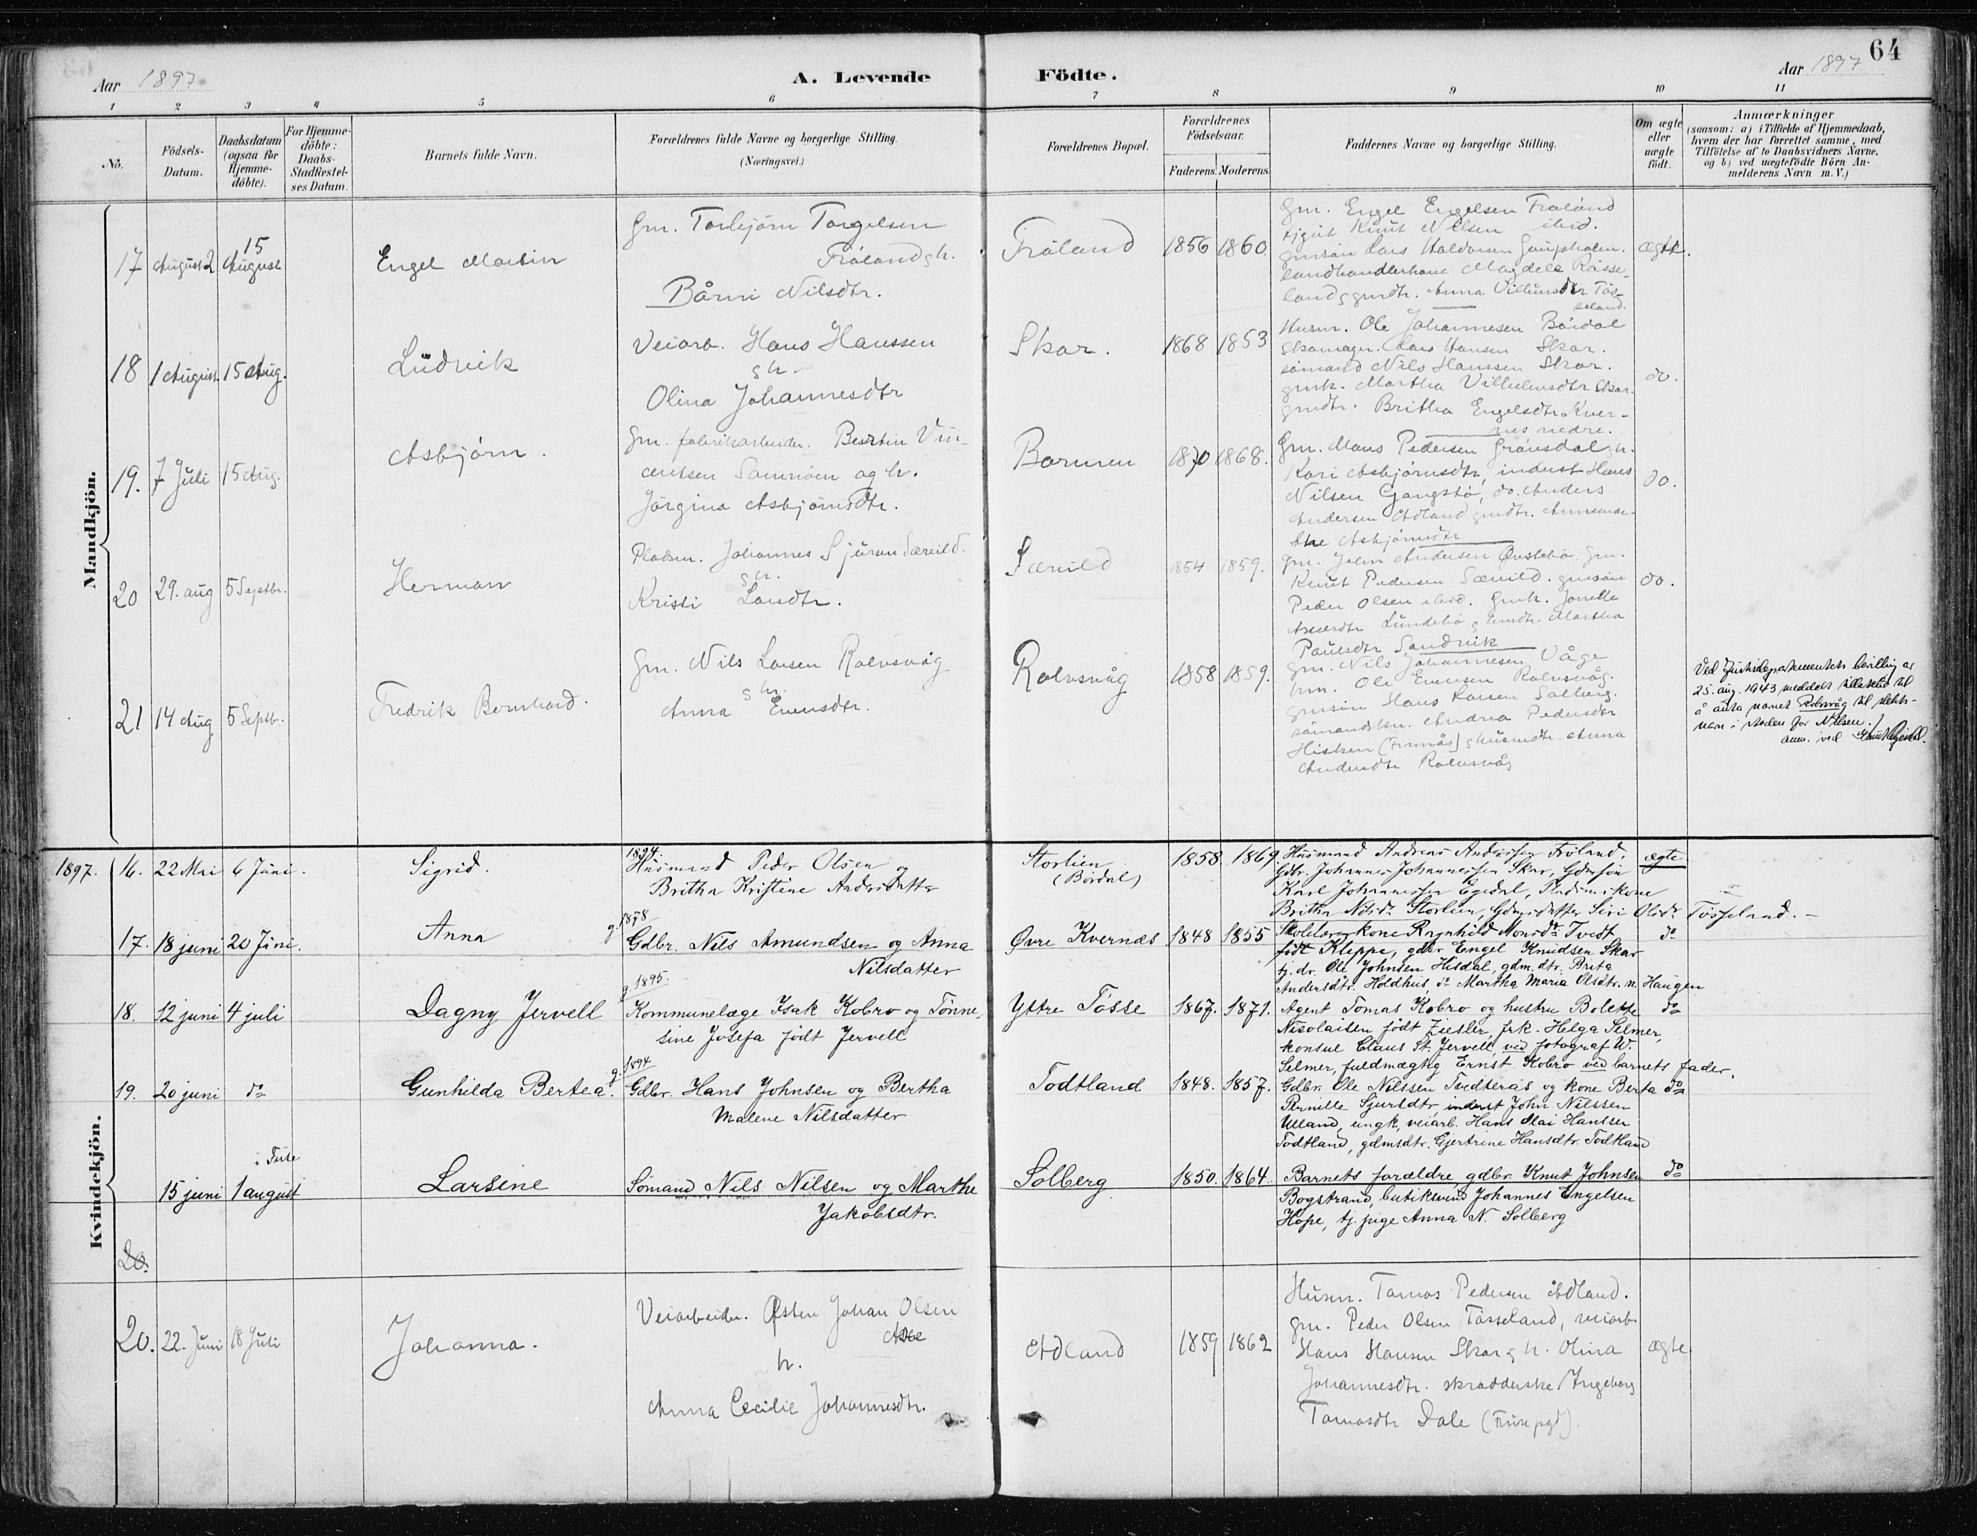 64
Aar 1897.
A. Levende Födte.
Aar 1897
1 2 3 4 5 6 7 8 9 10 11
No.
Födsels-Datum.
Daabsdatum (ogsaa for Hjemme-döbte).
For Hjemme-döbte: Daabs-Stadfæstel-ses Datum.
Barnets fulde Navn.
Forældrenes fulde Navne og borgerlige Stilling.
(Næringsvei.)
Forældrenes Bopæl.
Forældrenes Födselsaar.
Faderens. Moderens.
Faddernes Navne og borgerlige Stilling.
Om ægte eller uægte födt.
Anmærkninger
(saasom: a) i Tilfælde af Hjemmedaab,
hvem der har forrettet samme, med
Tilföielse af to Daabsvidners Navne,
og b) ved uægtefödte Börn An-
melderens Navn m. V.)
Mandkjön.
17 August 2 15 August
Engel Martin
Gm. Torbjörn Torgelsen
Fröland g h.
Börni Nilsdtr.
Fröland 1856 1860.
Gm. Engel Engelsen Fröland
tjgut Knut Nilsen ibid.
gmsön Lars Haldorsen Gaupholm.
landhandlerkone Magdela Rösse-
land g gmdtr. Anna Villumsdtr Tös-
seland.
ægte.
18 1 August. 15 Aug.
Ludvik
Veiarb. Hans Hanssen
g h.
Olina Johannesdtr
Skar. 1868 1853
Husm. Ole Johannesen Bördal
Skomager. Lars Hansen Skar.
sömand Nils Hanssen Skar.
gmk. Martha Vilhelmsdtr Skar.
gmdtr. Britha Engelsdtr Kver-
nes nedre.
do.
19. 7 Juli 15 Aug.
Asbjörn.
Gm. fabrikarbeider. Bertin Vin-
centsen Samnöen og h.
Jörgina Asbjörnsdtr.
Barmen 1870 1868.
Gm. Mons Pedersen Grönsdal g h.
Kari Asbjörnsdtr, inderst Hans
Nilsen Gangstö, do. Anders
Andersen Ådland gmdtr. Annema-
the Asbjörnsdtr
do.
20 29. aug 5 Septbr.
Herman
Pladsm. Johannes Sjursen Særvild.
g h.
Kristi Larsdtr.
Særvild 1854 1859.
Gm. John Andersen Øvstebø. Gm.
Knut Pedersen Særvild. gmsön
Peder Olsen ibid. Gmk. Jonetta
Lundebö g gmdtr. Martha
Paulsdtr Sandvik
do.
21 14 Aug 5 Septbr.
Fredrik Bernhard.
Gm. Nils Larsen Rolvsvåg
g h.
Anna Ennsdtr.
Rolvsvåg 1858 1859.
gm. Nils Johannesen Våge
hm. Ole Ennsen Rolvsvåg.
gmsön Hans Larsen Solberg.
sömandskn. Andrea Pedersdtr
Hisken (Finnås) g husmdtr. Anna
Andersdtr Rolvsvåg
Ved Justisdepartementets bevilling av
25. aug. 1943 meddelt tillatelse til
å anta navnet Rolvsvåg til slekts-
navn i steden for Nilsen.
anm. ved
Kvindekjön.
1897. 16. 22 Mai 6 Juni.
Sigrid.
1894.
Husmand Peder Olsen og
Britha Kristine Andersdatter
Storlien
(Bördal)
1858. 1869
Husmand Andreas Andersen Fröland,
Gdbr. Johannes Johannessen Skar, Gdmsön
Karl Johannessen Egedal, Pladsmkone
Britha Nilsdr. Storlien, Gdmsdatter Siri Olsdr. Tösseland.
ægte
17. 18 juni 20 Juni.
Anna
g. 1878
Gdbr. Nils Amundsen og Anna
Nilsdatter
Øvre Kvernæs 1848 1855
Skolelærerkone Ragnhild Monsdr. Tvedt
født Kleppe, gdbr. Engel Knudsen Skar
tj. dr. Ole Johnsen Hisdal, gdm.dtr. Brita
Andersdtr. Holdhus, do Martha Maria Olsdtr. n. Haugen
do
18. 12 juni 4 juli
Dagny Jervell
g. 1895.
Kommunelæge Isak Kobro og Tönne-
sine Josefa født Jervell
Yttre Tösse 1867. 1871.
Agent Tomas Kobro og hustru Bolette
Nicolaisen født Ziesler, frk. Helga Selmer,
konsul Claus St. Jervell, ved fotograf W.
Selmer, fuldmægtig Ernst Kobro ved barnets fader.
do
19. 20 juni do
Gunhilda Bertea.
g. 1894
Gdbr. Hans Johnsen og Bertha
Malene Nilsdatter
Todtland 1848. 1857.
Gdbr. Ole Nilssen Tvedterås og kone Berta
Pernille Sjursdtr, inderst John Nilssen
Ulland, ungk. veiarb. Hans Mai Hanssen
Todtland, gdmsdtr. Gjertrine Hansdtr. Todtland
do
i Fuse
15 juni 1 august
Larsine
Sömand Nils Nilsen og Marthe
Jakobsdtr.
Solberg 1850. 1864.
Barnets forældre, gdbr. Knut Johnsen
Bogstrand, butiksvend Johannes Engelsen
Hope, tj. pige Anna N. Solberg
do
20.
20. 22. Juni 18 Juli
Johanna.
Veiarbeider. Østen Johan Olsen
h.
Anna Cecilie Johannesdtr.
Ådland 1859 1862
Husm. Tomas Pedersen Ådland.
gm. Peder Olsen Tösseland, veiarb.
Hans Hansen Skar g h. Olina
Johannesdtr. skrædderske Ingeborg
Tomasdtr Dale (Fuse pgd).
ægte